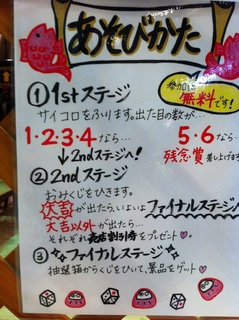 あそびかた
参加は
無料です!
① 1stステージ
サイコロをふります。出た目の数が…
1・2・3・4なら… 5・6なら…
↓2ndステージへ! 残念賞差し上げます
② 2ndステージ
おみくじをひきます。
大吉が出たら、いよいよファイナルステージへ
大吉以外が出たら…
それぞれ売店割引券をプレゼント♡。
③ ファイナルステージ
抽選箱からくじをひいて、景品をゲット♡。